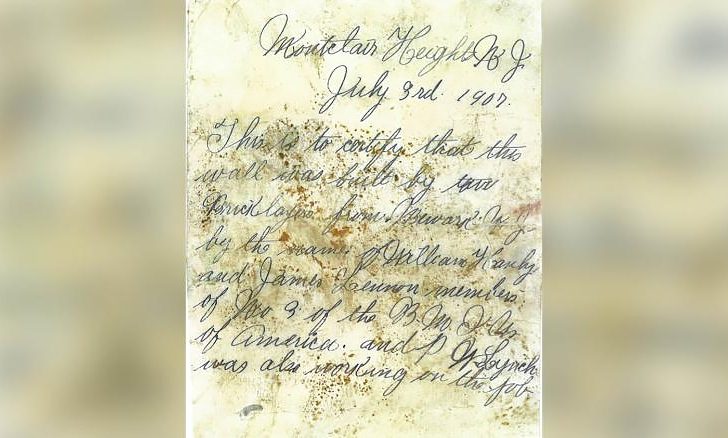 Montclair Heights N J.
July 3rd 1907.
This is to certify that this
wall was built by two
Bricklayers from Newark N. J.
by the names of William Hanly
and James Lennon members
of No 3 of the B. M. I. U.
of America. and P W Lynch
was also working on the job